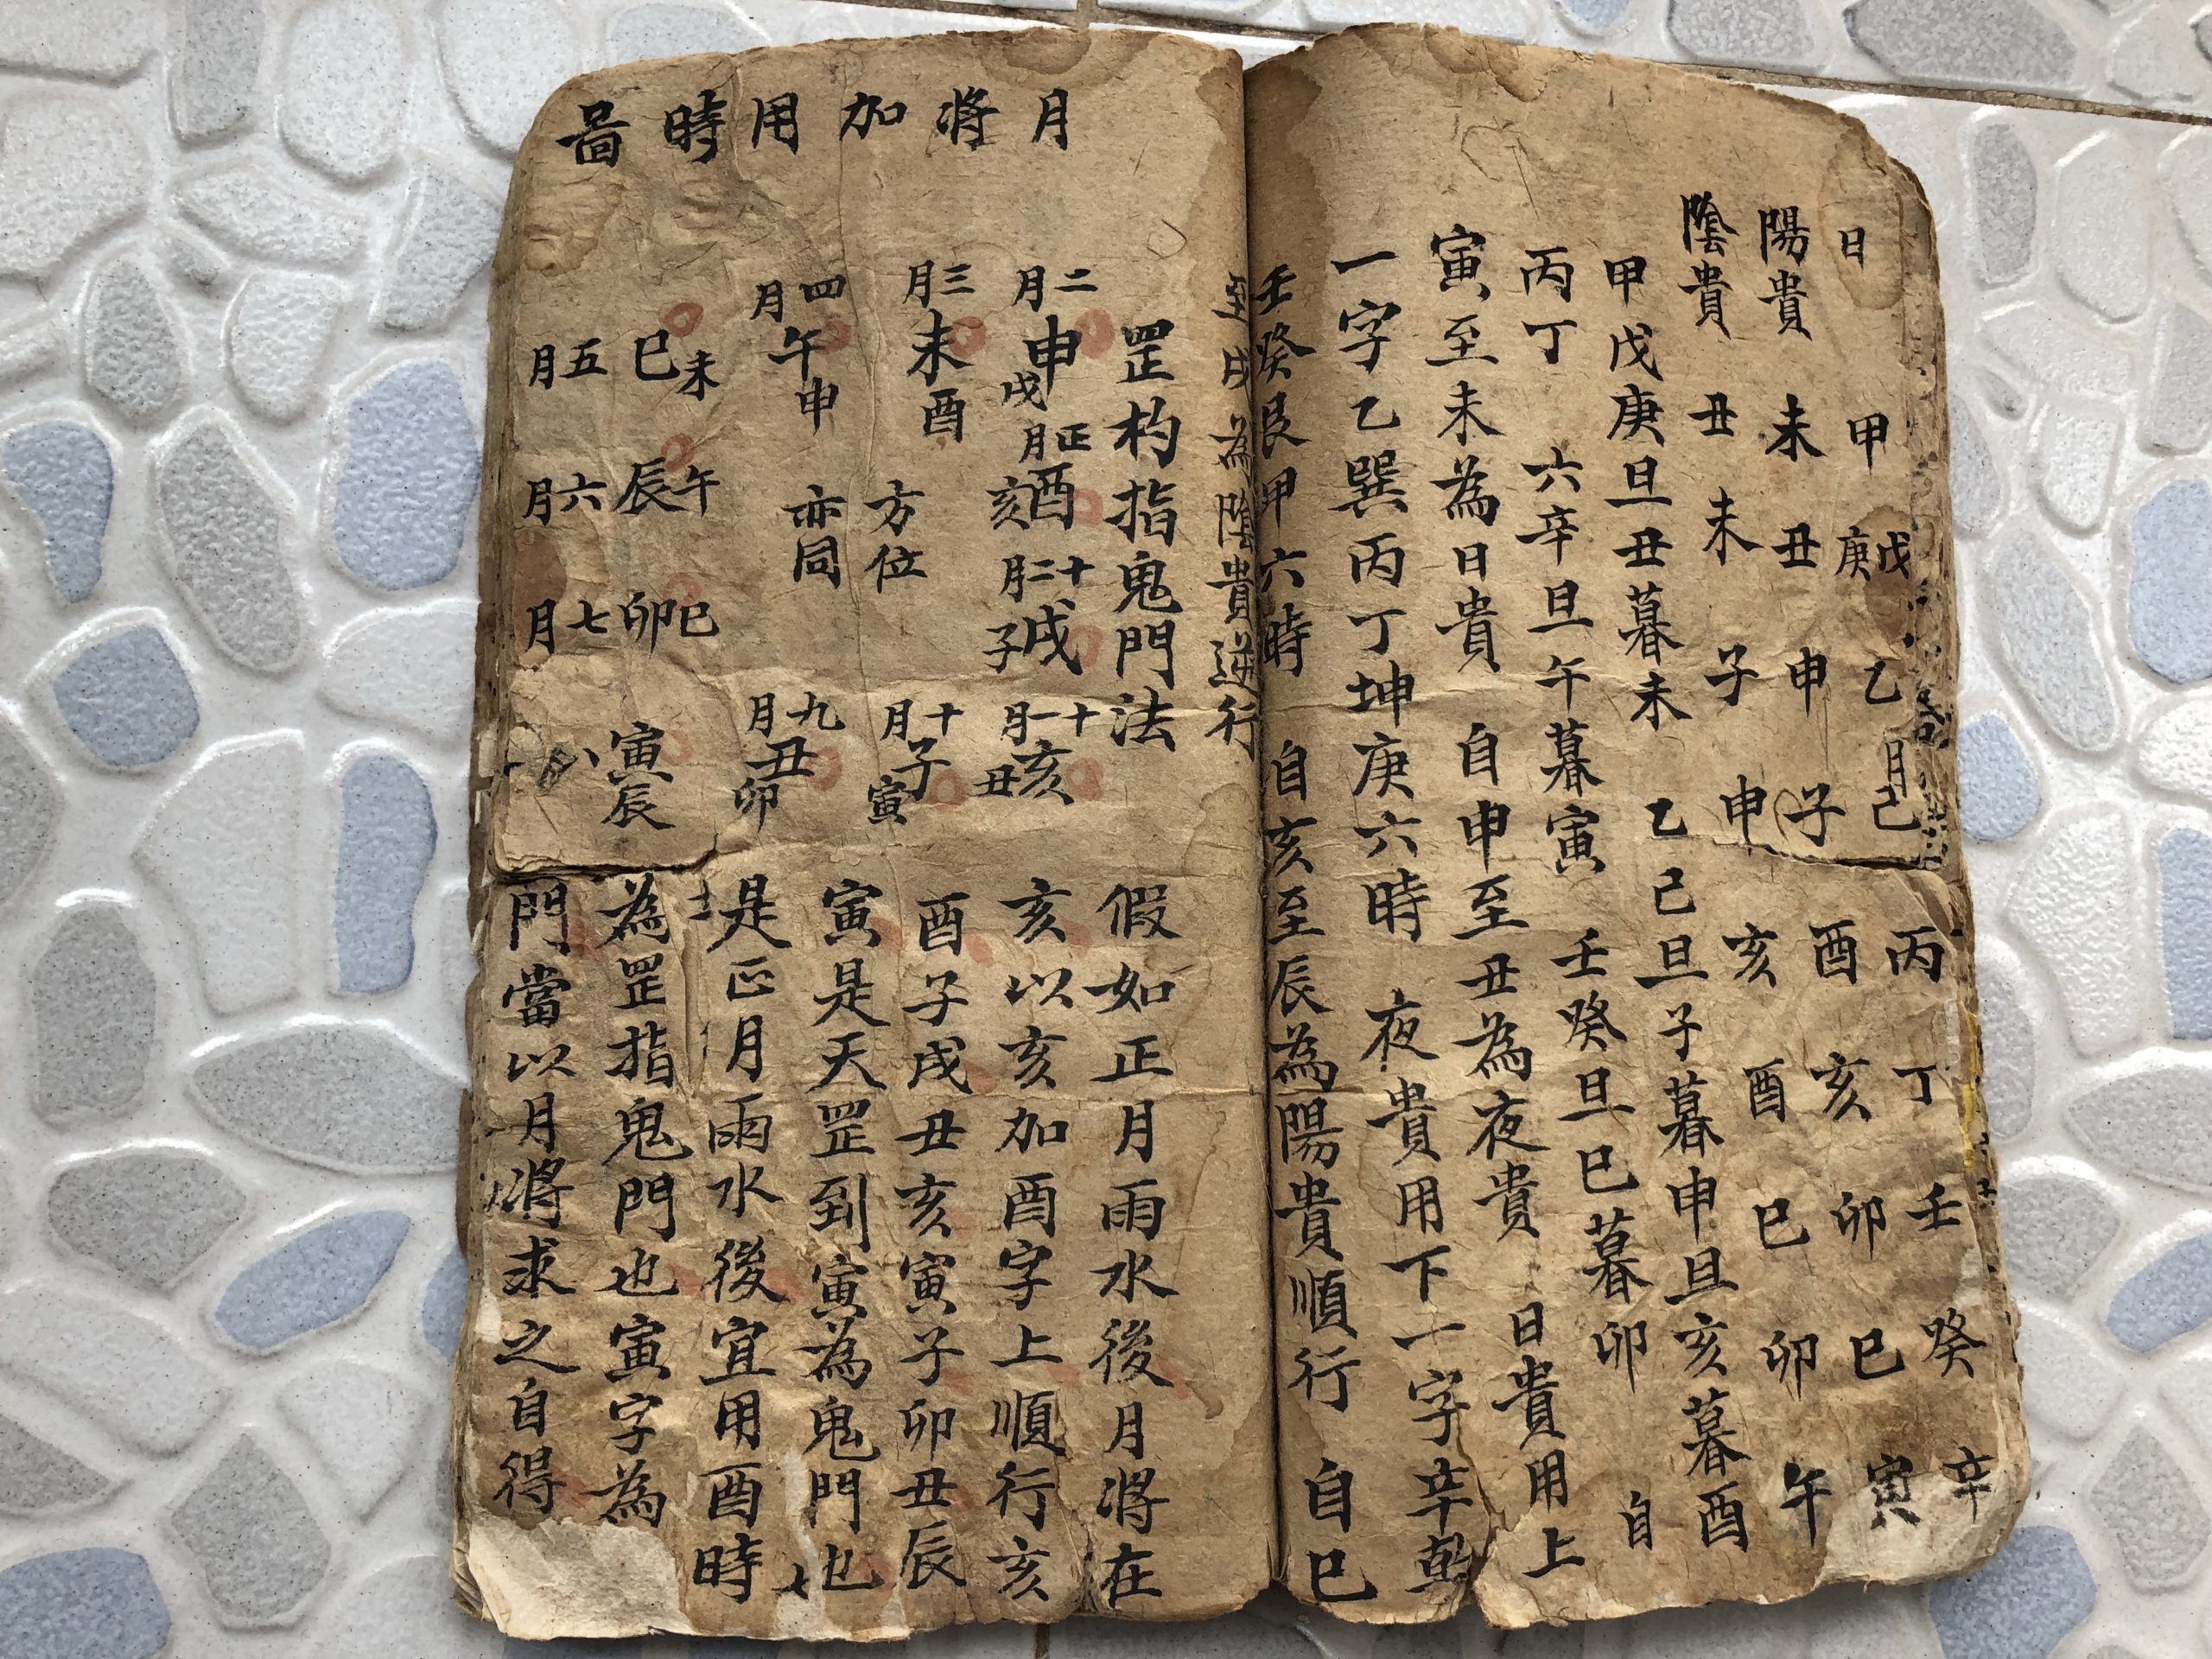 日 甲 戊庚 乙 己 丙 丁 壬 癸 辛
月
陽貴 未 丑 申 子 酉 亥 卯 巳 寅
陰貴 丑 未 子 申 亥 酉 巳 卯 午
甲戊庚旦丑暮未 乙己旦子暮申旦亥暮酉
丙丁 六辛旦午暮寅 壬癸旦巳暮卯 自
寅至未為日貴 自申至丑為夜貴 日貴用上
一字乙巽丙丁坤庚六時 夜貴用下一字辛乾
壬癸艮甲六時 自亥至辰為陽貴順行 自巳
至戌為陰貴逆行
月將加用時啚
罡杓指鬼門法
二月 申 戌
正月 酉 亥
十二月 戌 子
十一月 亥 丑
三月 未 酉
十月 子 寅
四月 午 申
九月 丑 卯
方位
亦同
五月 巳 未
六月 辰 午
七月 卯 巳
八 寅 辰
假如正月雨水後月將在
亥以亥加酉字上順行亥
酉子戌丑亥寅子卯丑辰
寅是天罡到寅為鬼門也
是正月雨水後宜用酉時
為罡指鬼門也寅字為
門當以月將求之自得